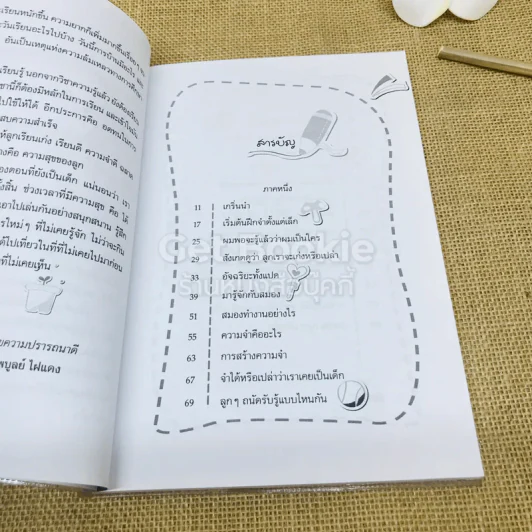 เรียนหนักขึ้น ความยากก็เพิ่มมากขึ้นเรื่อย ๆ
วันเรียนอะไรไปบ้าง วันนี้การบ้านมีอะไร
อันเป็นเหตุแห่งความล้มเหลวทางการศึกษา
เรียนรู้ นอกจากวิชาความรู้แล้ว ยังต้อง
ชานี้ก็ต้องมีหลักในการเรียน และเข้าใจ
ไปใช้ให้ได้ อีกประการคือ อดทนในการ
สบความสำเร็จ
ให้ลูกเรียนเก่ง เรียนดี ความจำดี ฉลาด
คือ ความสุขของลูก
ตอนที่ยังเป็นเด็ก แน่นอนว่า เรา
งสิ้น ช่วงเวลาที่มีความสุข คือ ได้
เอาไปเล่นกันอย่างสนุกสนาน รู้สึก
ใหม่ๆ ที่ไม่เคยรู้จัก ไม่ว่าจะกิน
ด้ไปเที่ยวในที่ที่ไม่เคยไปมาก่อน
ที่ไม่เคยเห็น
ยความปรารถนาดี
พบูลย์ ไฝแดง
สารบัญ
ภาคหนึ่ง
11 เกริ่นนำ
17 เริ่มต้นฝึกจำตั้งแต่เล็ก
25 ผมพอจะรู้แล้วว่าผมเป็นใคร
29 สังเกตดูว่า ลูกเราจะเก่งหรือเปล่า
33 อัจฉริยะทั้งแปด
39 มารู้จักกับสมอง
51 สมองทำงานอย่างไร
55 ความจำคืออะไร
63 การสร้างความจำ
67 จำได้หรือเปล่าว่าเราเคยเป็นเด็ก
69 ลูกๆ ถนัดรับรู้แบบไหนกัน
Get Bookie
ร้านหนังสือบุคกี้